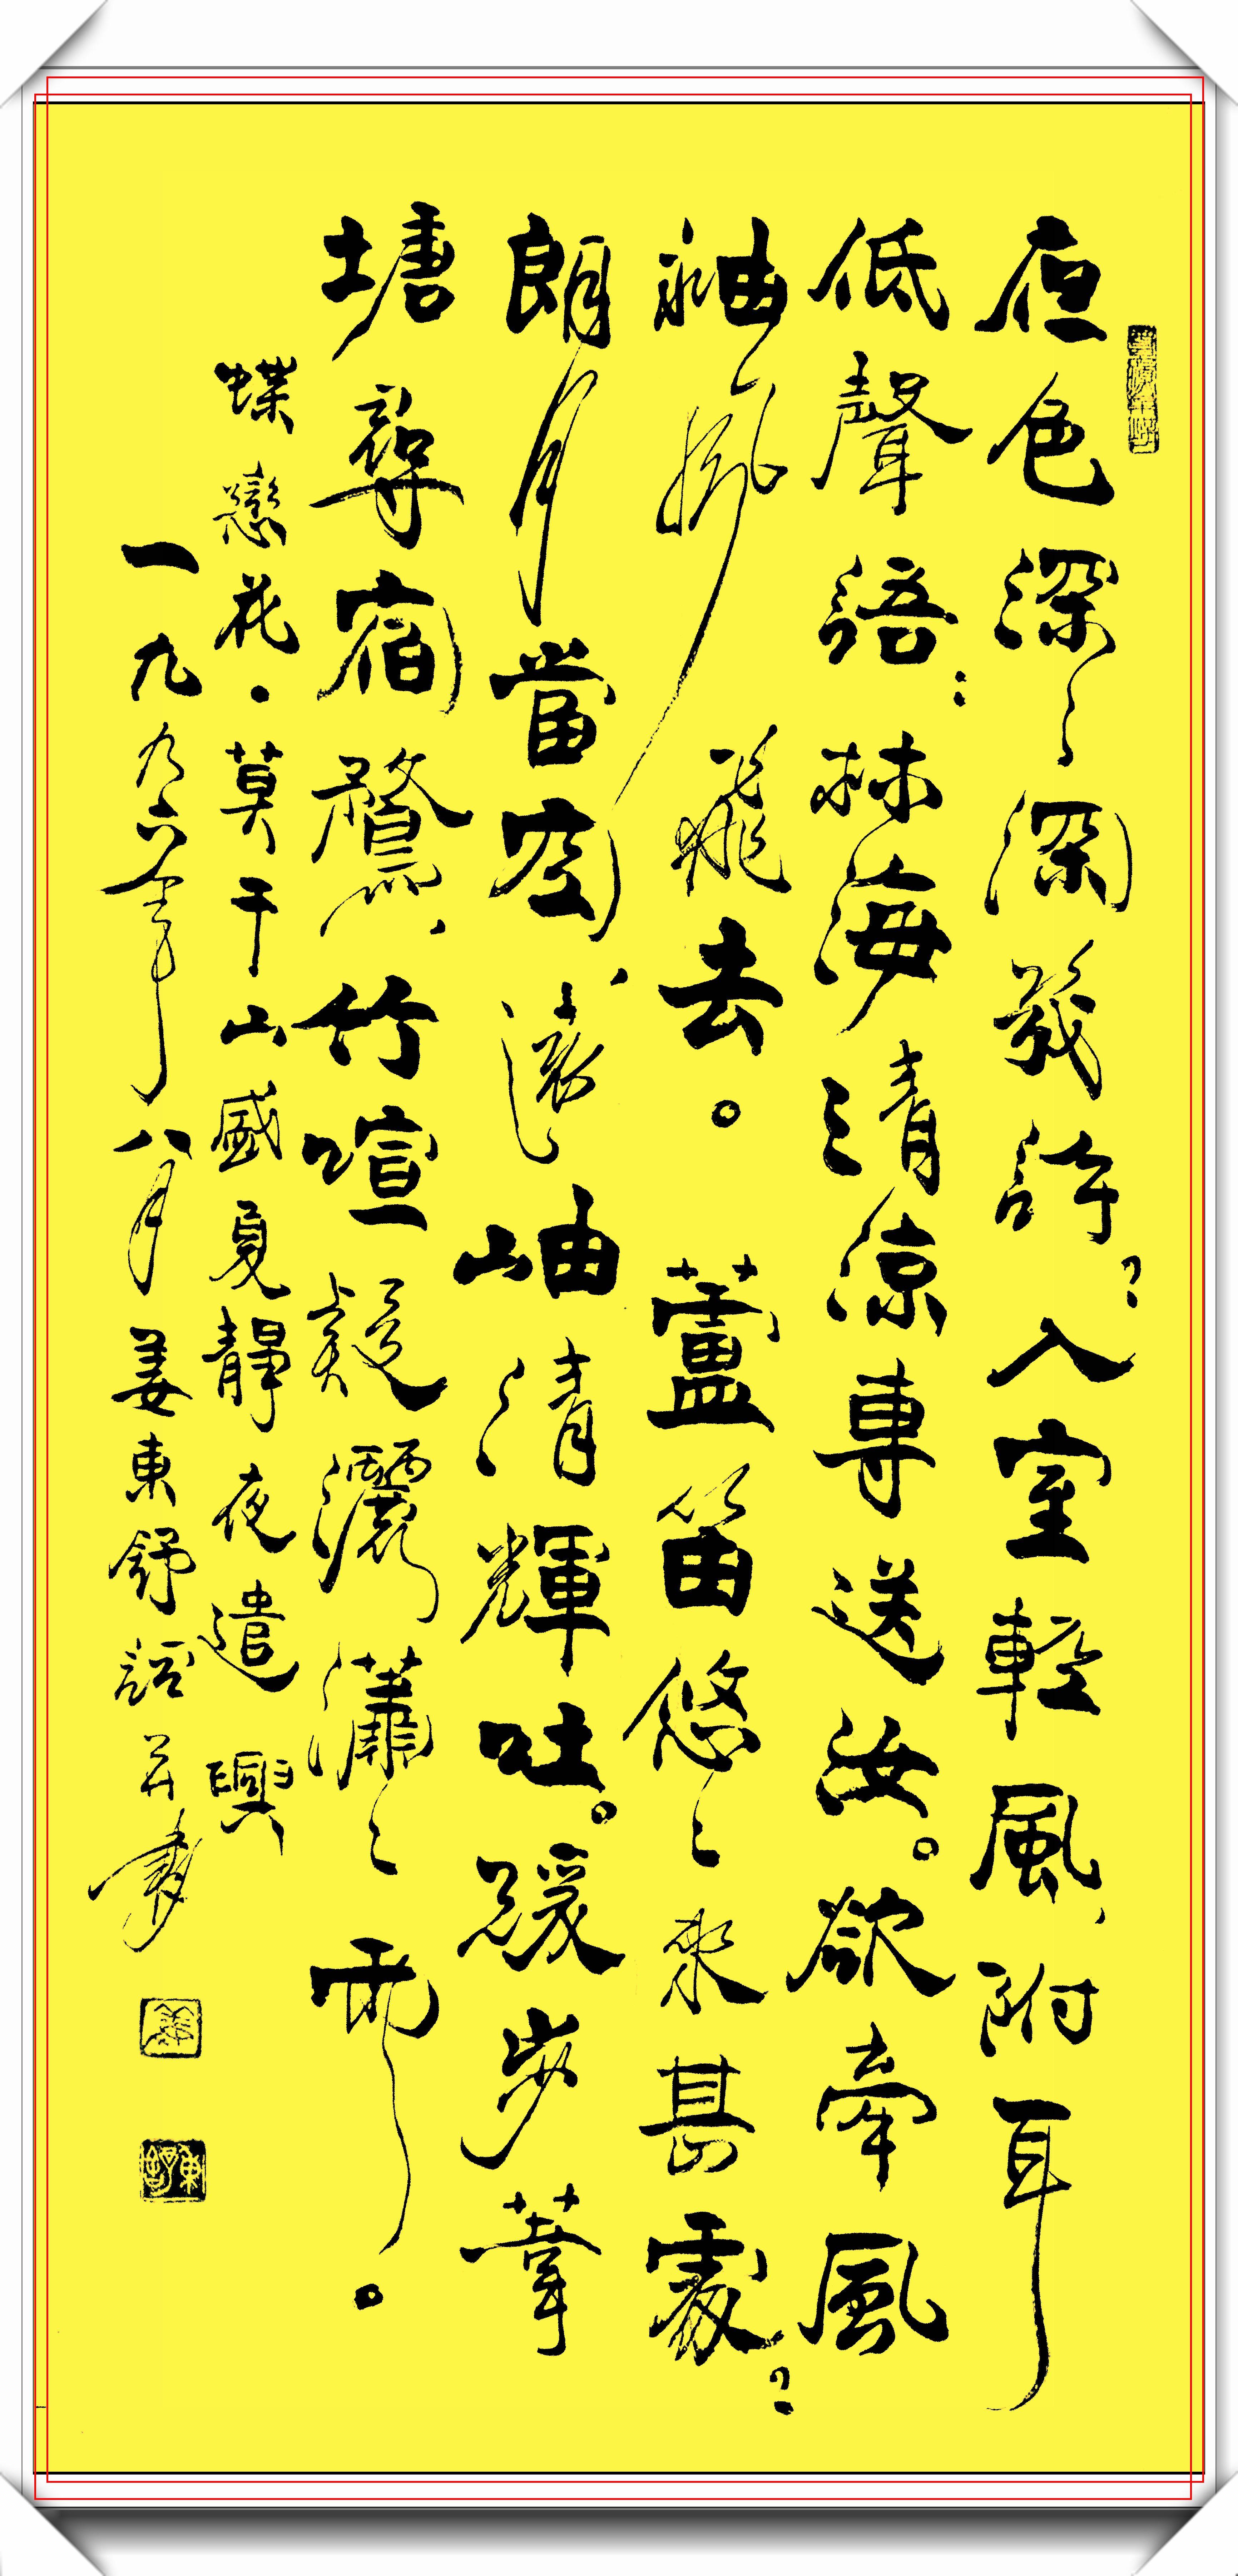 夜色深〻深幾許？入室輕風，附耳
低聲語：林海清涼專送汝。欲牽風
袖風飛去。　蘆笛悠〻來甚處？
朗月當空，遠岫清輝吐。緩步葦
塘尋宿鷺，竹喧疑灑瀟〻雨。
蝶戀花·莫干山盛夏靜夜遣興
一九九六年八月姜東舒詞并書